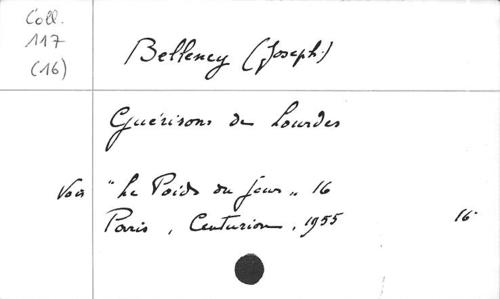 Coll.
117
(16)
Belleney (Joseph)
Guérisons de Lourdes
Voir "Le Poids du jour" 16
Paris, Centurion, 1955
16